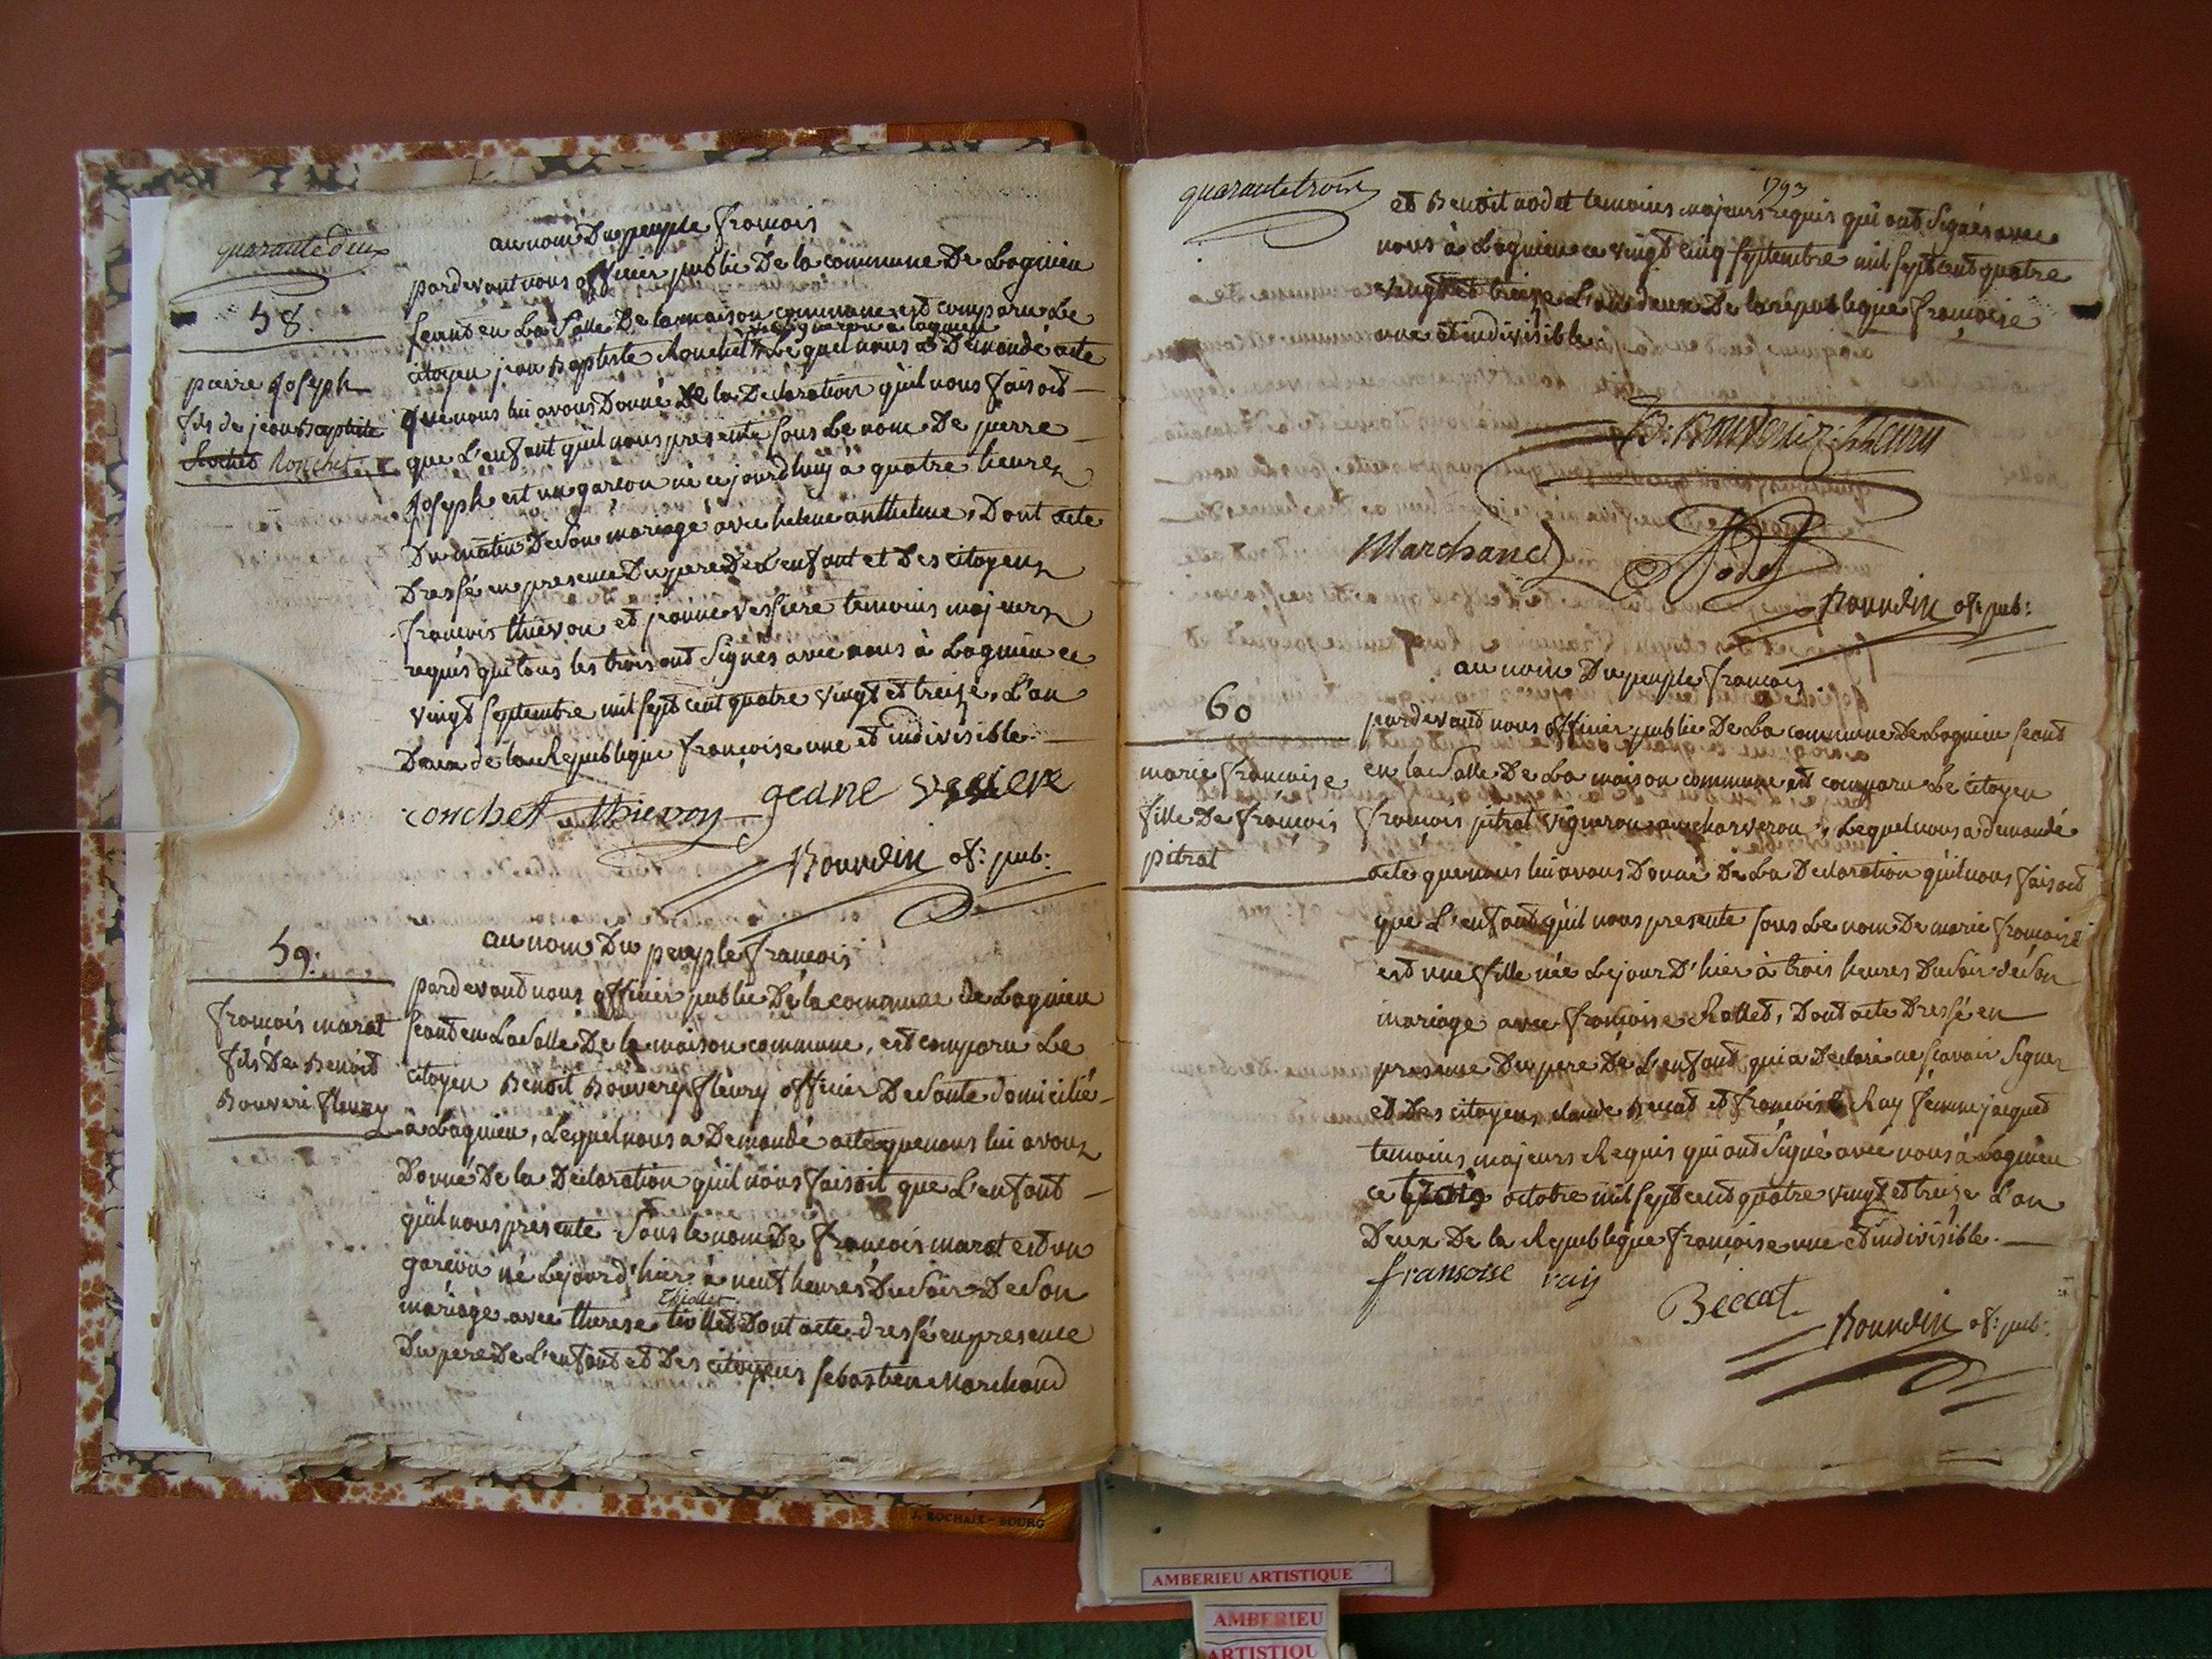 quarante deux
58.
pierre Joseph
fils de jean Baptiste
Rochet Ronchet
au nom Du peuple françois
pardevant nous officier public De la commune De Lagnieu
seant en La Salle De la maison commune est comparu Le
vigneron a lagnieu
citoyen jean Baptiste Ronchet Lequel nous a Demandé acte
que nous lui avons Donné De la Declaration qu'il nous faisoit
que L'enfant qu'il nous presente sous Le nom De pierre
Joseph est un garcon né ce jourd'huy à quatre heures
Du matin De son mariage avec helene anthelme, Dont acte
Dressé en presence Du pere De L'enfant et Des citoyens
francois thievon et jeanne vessiere temoins majeurs
requis qui tous les trois ont Signés avec nous à Lagnieu ce
vingt septembre mil sept cent quatre vingt et treize. L'an
Deux de la Republique françoise une et indivisible.
ronchet thievon geane vesiere
Bourdin of: pub:
59.
françois marat
fils De Benoit
Bouveri fleury
au nom Du peuple françois
pardevant nous officier public De la commune de Lagnieu
seant en La Salle De la maison commune, est comparu Le
citoyen Benoit Bouvery fleury officier De Sante domicilié
a Lagnieu, Lequel nous a Demandé acte que nous lui avons
Donné De la Declaration qu'il nous faisoit que L'enfant
qu'il nous presente Sous le nom De françois marat est un
garcon né Le jour d'hier à neuf heures Du Soir De Son
Thiollet
mariage avec therese tiollet Dont acte dressé en presence
Du pere De L'enfant et Des citoyens sebastien Marchand
quarante trois
1793
et Benoit nodet temoins majeurs requis qui ont Signés avec
nous à Lagnieu ce vingt cinq septembre mil sept cent quatre
vingt et treize L'an deux De la république françoise
une et indivisible
B: Bouverie fleury
Marchand
Nodet
Bourdin of: pub:
60
marie françoise
fille De françois
pitrat
au nom Du peuple françois
pardevant nous officier public De La commune De Lagnieu seant
en la Salle De La maison commune est comparu Le citoyen
françois pitrat vigneron au charveron, Lequel nous a demandé
acte que nous lui avons Donné De La Declaration qu'il nous faisoit
que L'enfant qu'il nous presente sous Le nom De marie françoise
est une fille née Le jour D'hier à trois heures Du Soir de Son
mariage avec françoise Rollet, Dont acte Dressé en
presence Du pere De L'enfant qui a Declaré ne sçavoir Signer
et Des citoyens claude Beccat et françoise Ray femme jacquet
temoins majeurs Requis qui ont Signé avec nous à Lagnieu
ce trois octobre mil sept cent quatre vingt et treize L'an
Deux De la Republique françoise une et indivisible.
fransoise raij
Beccat
Bourdin of: pub:
J. ROCHAIX - BOURG
AMBERIEU ARTISTIQUE
AMBERIEU
ARTISTIQU